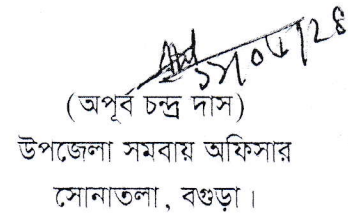 (অপূর্ব চন্দ্র দাস)
উপজেলা সমবায় অফিসার
সোনাতলা, বগুড়া।